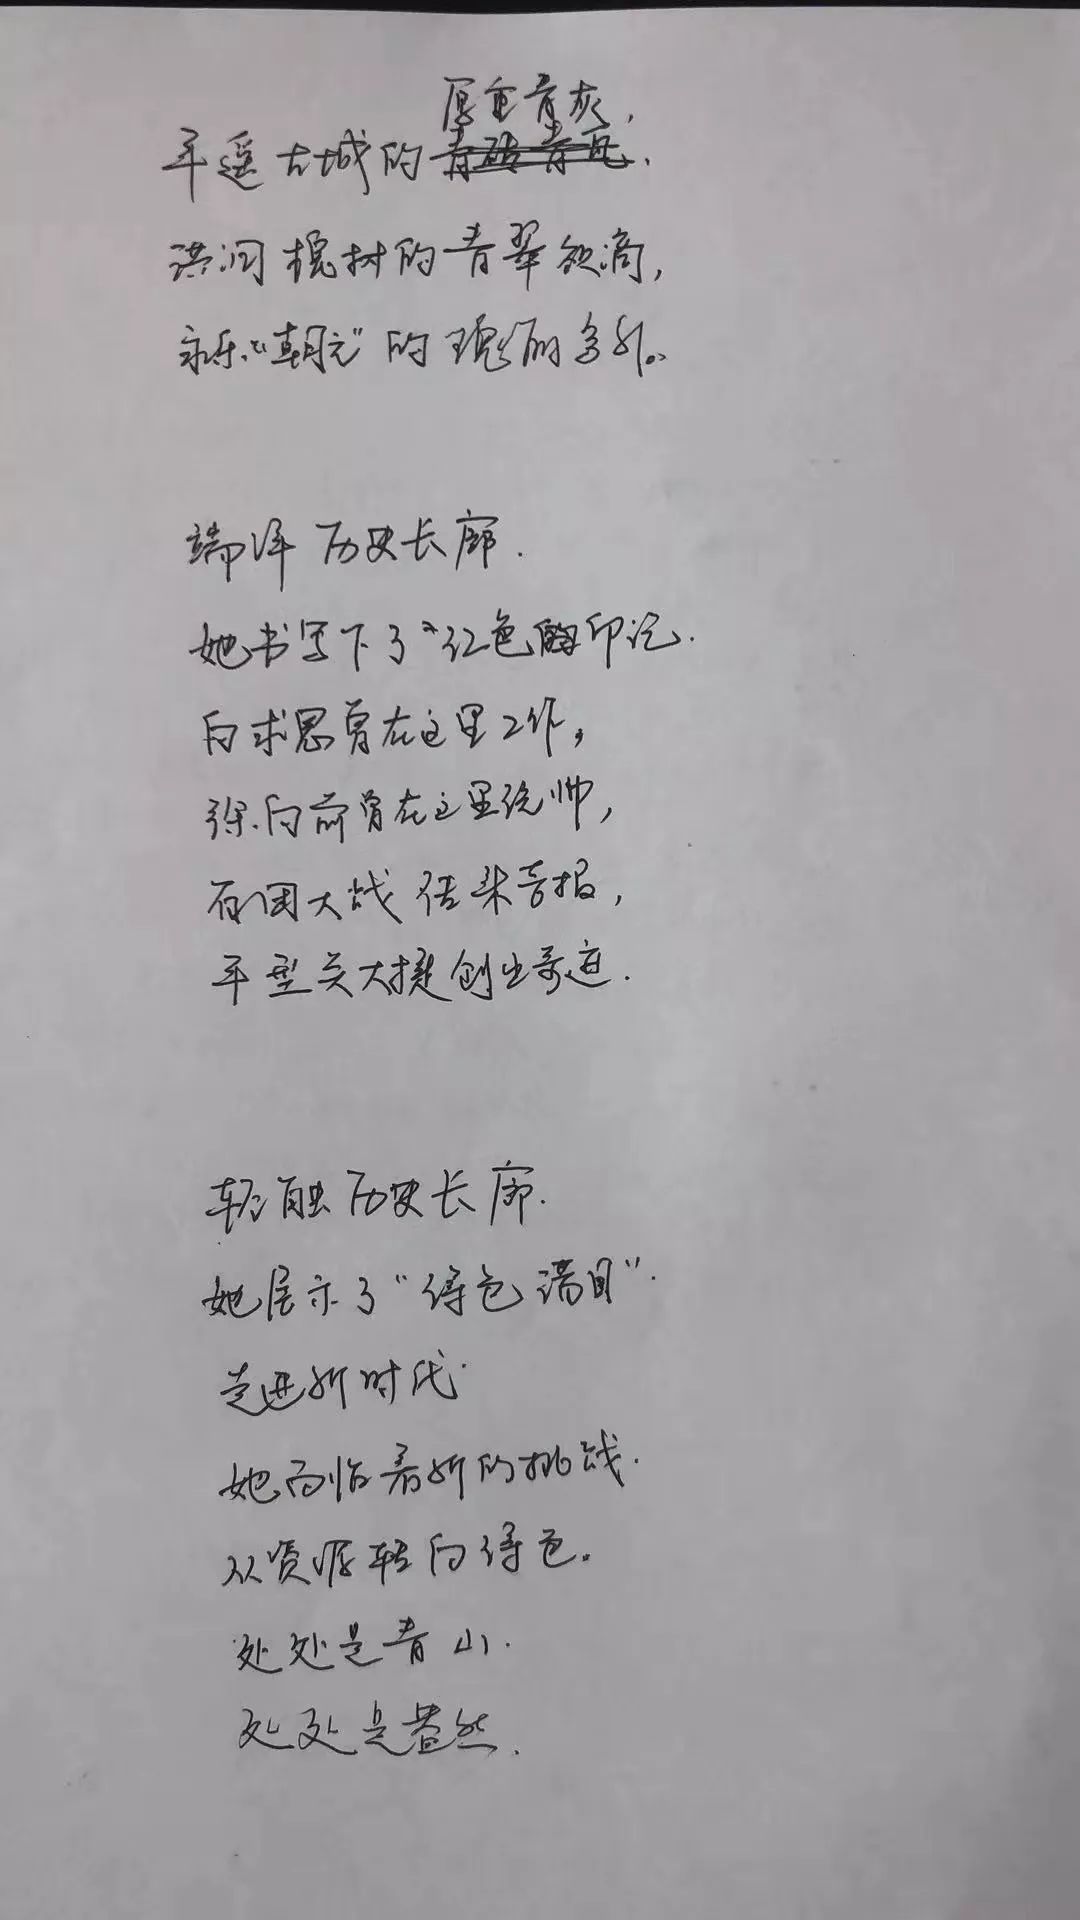 厚重青灰,
平遥古城的青砖青瓦.
洪洞槐树的青翠欲滴,
永乐"朝元"的瑰丽多彩。
端详历史长廊.
她书写下了"红色印记.
白求恩曾在这里工作,
徐向前曾在这里统帅,
百团大战传来喜报,
平型关大捷创出奇迹.
轻触历史长廊.
她展示了"绿色满目".
走进新时代.
她面临着新的挑战.
从资源转向绿色。
处处是青山.
处处是盎然.